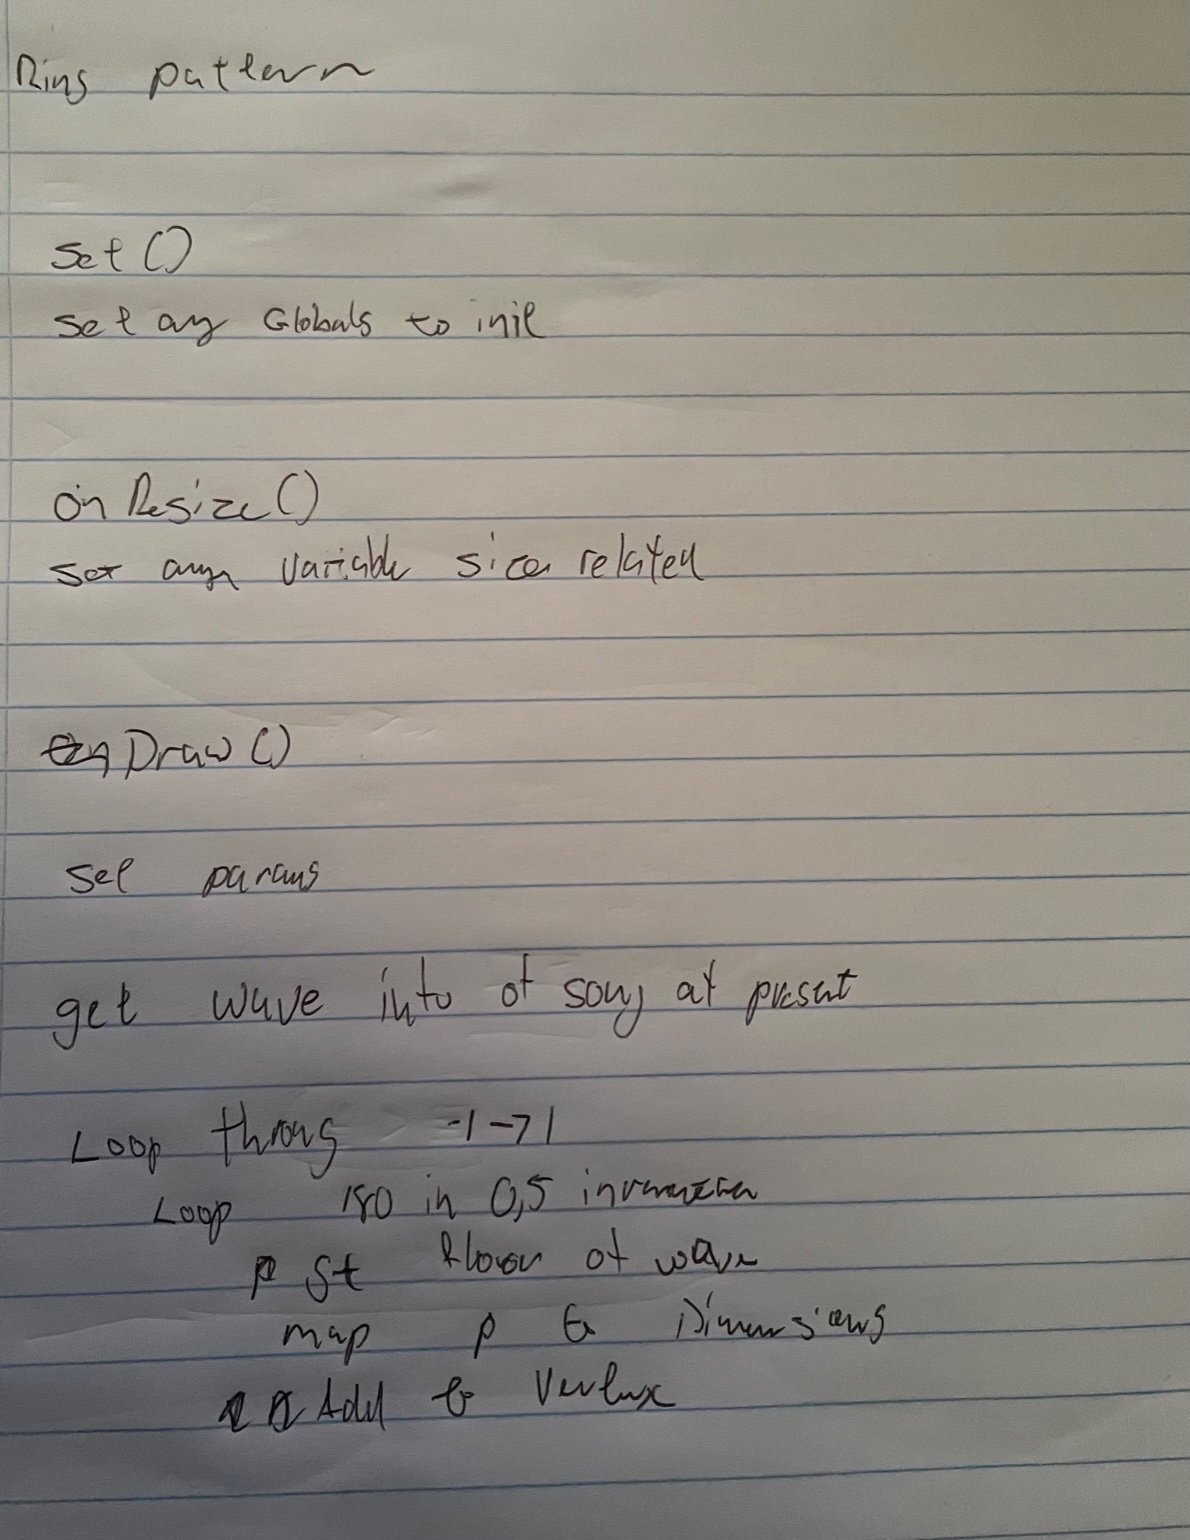 Ring pattern
set()
set any Globals to init
onResize()
set any variable size related
Draw()
set params
get wave info of song at present
Loop throug -1 → 1
Loop 180 in 0,5
p st floor of wave
map p to Dimensions
Add to Vertux